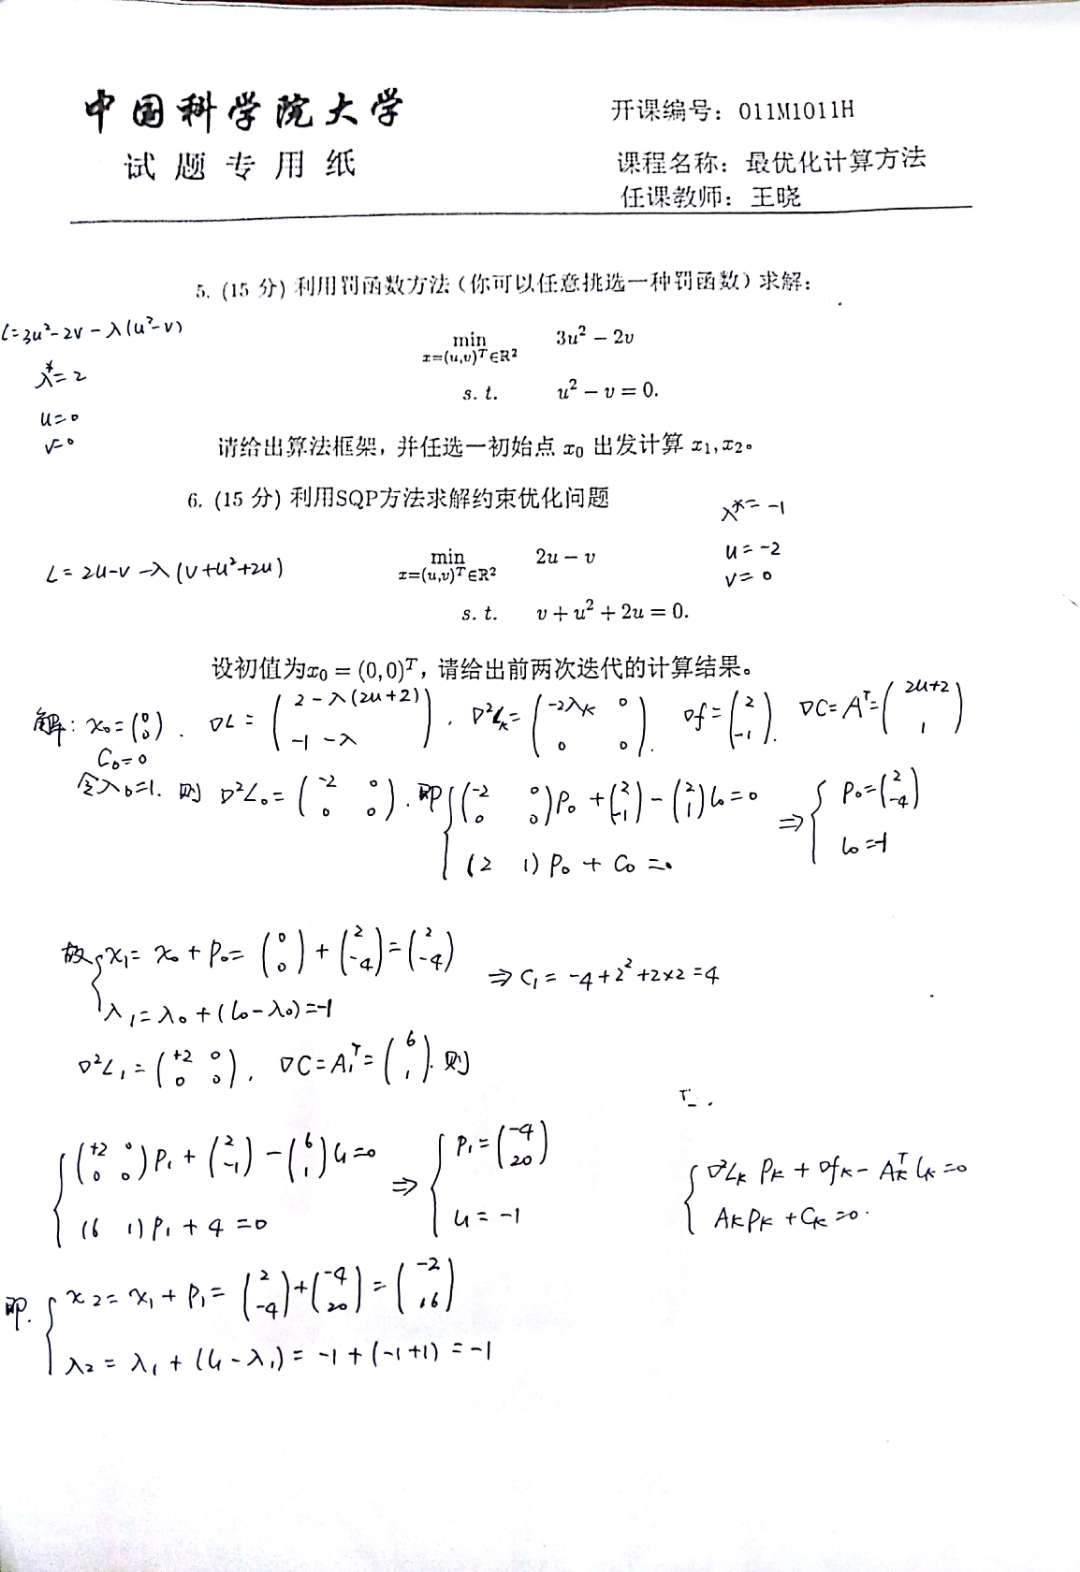 中国科学院大学
试题专用纸
开课编号：011M1011H
课程名称：最优化计算方法
任课教师：王晓
5. (15 分) 利用罚函数方法（你可以任意挑选一种罚函数）求解：
L=3u²-2v-λ(u²-v)
λ*=2
u=0
v=0
min x=(u,v)ᵀ∈ℝ² 3u² − 2v
s. t. u² − v = 0.
请给出算法框架，并任选一初始点 x₀ 出发计算 x₁, x₂。
6. (15 分) 利用SQP方法求解约束优化问题
λ*=-1
u=-2
v=0
L=2u-v-λ(v+u²+2u)
min x=(u,v)ᵀ∈ℝ² 2u − v
s. t. v + u² + 2u = 0.
设初值为x₀ = (0,0)ᵀ，请给出前两次迭代的计算结果。
解: x₀=(0 0). ∇L=(2-λ(2u+2) -1-λ). ∇²Lₖ=(-2λₖ 0 0 0). ∇f=(2 -1). ∇C=Aᵀ=(2u+2 1)
C₀=0
令λ₀=1. 则 ∇²L₀=(-2 0 0 0). 即{(-2 0 0 0)P₀+(2 -1)-(2 1)l₀=0 ⇒ {P₀=(2 -4)
(2 1)P₀+C₀=0 l₀=-1
故{x₁=x₀+P₀=(0 0)+(2 -4)=(2 -4) ⇒ C₁=-4+2²+2×2=4
λ₁=λ₀+(l₀-λ₀)=-1
∇²L₁=(+2 0 0 0). ∇C=A₁ᵀ=(6 1). 则
{(+2 0 0 0)P₁+(2 -1)-(6 1)l₁=0 ⇒ {P₁=(-4 20)
(6 1)P₁+4=0 l₁=-1
{∇²Lₖ Pₖ+∇fₖ-Aₖᵀlₖ=0
AₖPₖ+Cₖ=0.
即.{x₂=x₁+P₁=(2 -4)+(-4 20)=(-2 16)
λ₂=λ₁+(l₁-λ₁)=-1+(-1+1)=-1